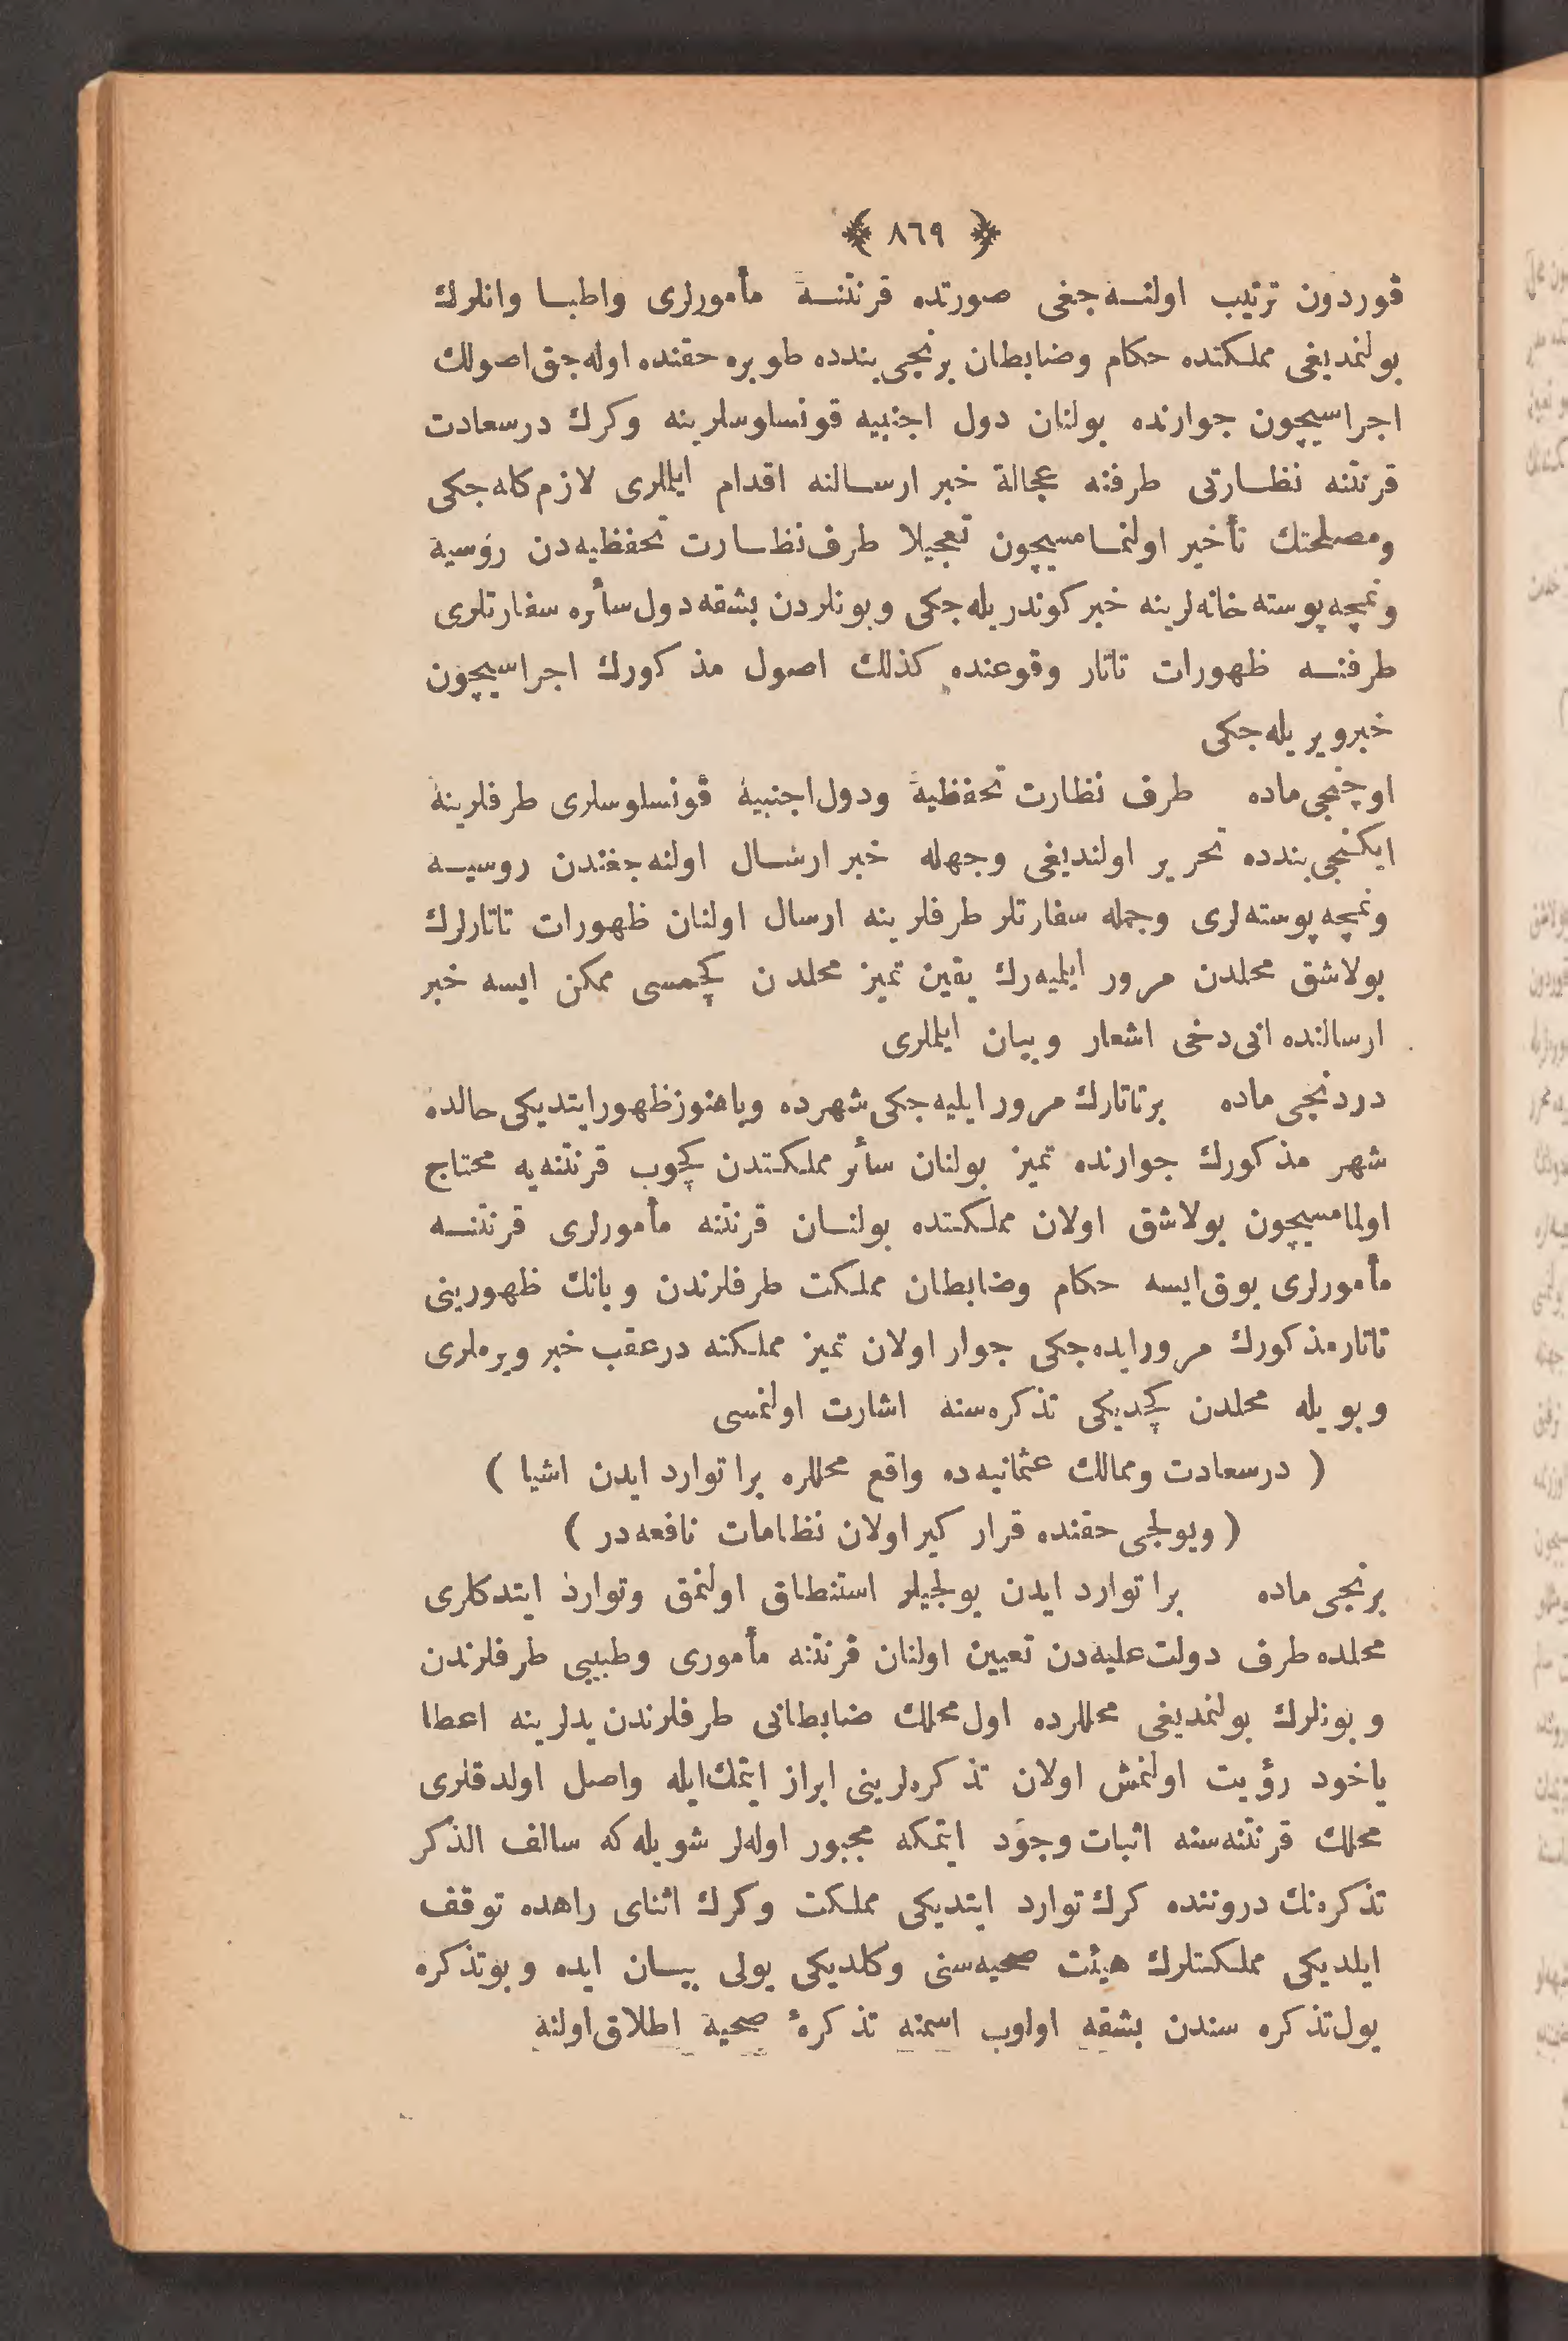 ﴿ ٨٦٩ ﴾
قوردون ترتیب اولنه‌جغی صورتده قرنتنه مأمورلری واطبا وانلرك
بولنمدیغی مملكتده حكام وضابطان برنجی‌بندده طوبره حقنده اوله‌جق‌اصولك
اجراسیچون جوارنده بولنان دول اجنبیه قونسلوسلرینه وكرك درسعادت
قرنتنه نظارتی طرفنه عجالة خبر ارسالنه اقدام ایللری لازم‌كله‌جكی
ومصلحتك تأخیر اولنمامسیچون تعجیلا طرف‌نظارت تحفظیه‌دن روسیه
ونمچه‌پوسته‌خانه‌لرینه خبر كوندریله‌جكی وبونلردن بشقه‌دول‌سأره سفارتلری
طرفنه ظهورات تاتار وقوعنده كذلك اصول مذكورك اجراسیچون
خبرویریله‌جكی
اوچنجی‌ماده طرف نظارت تحفظیه ودول‌اجنبیه قونسلوسلری طرفلرینه
ایكنجی‌بندده تحریر اولندیغی وجهله خبر ارسال اولنه‌جغندن روسیه
ونمچه‌پوسته‌لری وجمله سفارتلر طرفلرینه ارسال اولنان ظهورات تاتارلرك
بولاشق محلدن مرور ایلیه‌رك یقین تمیز محلدن كچمسی ممكن ایسه خبر
ارسالنده انی‌دخی اشعار وبیان ایللری
دردنجی‌ماده برتاتارك مرورایلیه‌جكی‌شهرده وباهنوزظهورایتدیكی‌حالده
شهر مذكورك جوارنده تمیز بولنان سأر مملكتدن كچوب قرنتنه‌یه محتاج
اولمامسیچون بولاشق اولان مملكتده بولنان قرنتنه مأمورلری قرنتنه
مأمورلری یوق‌ایسه حكام وضابطان مملكت طرفلرندن وبانك ظهورینی
تاتارمذكورك مرورایده‌جكی جوار اولان تمیز مملكته درعقب خبر ویرملری
وبویله محلدن كچدیكی تذكره‌سنه اشارت اولنمسی
( درسعادت وممالك عثمانیه‌ده واقع محللره برا توارد ایدن اشیا )
( ویولجی حقنده قرار كیراولان نظامات نافعه‌در )
برنجی‌ماده برا توارد ایدن یولجیلر استنطاق اولنمق وتوارد ایتدكلری
محلده طرف دولت‌علیه‌دن تعیین اولنان قرنتنه مأموری وطبیبی طرفلرندن
وبونلرك بولنمدیغی محللرده اول‌محلك ضابطانی طرفلرندن‌یدلرینه اعطا
یاخود رؤیت اولنمش اولان تذكره‌لرینی ابراز ایتمك‌ایله واصل اولدقلری
محلك قرنتنه‌سنه اثبات وجود ایتمكه مجبور اوله‌لر شویله‌كه سالف الذكر
تذكره‌نك دروننده كرك توارد ایتدیكی مملكت وكرك اثنای راهده توقف
ایلدیكی مملكتلرك هیئت صحیه‌سنی وكلدیكی یولی بیان ایده وبوتذكره
یول‌تذكره سندن بشقه اولوب اسمنه تذكرۀ صحیه اطلاق‌اولنه